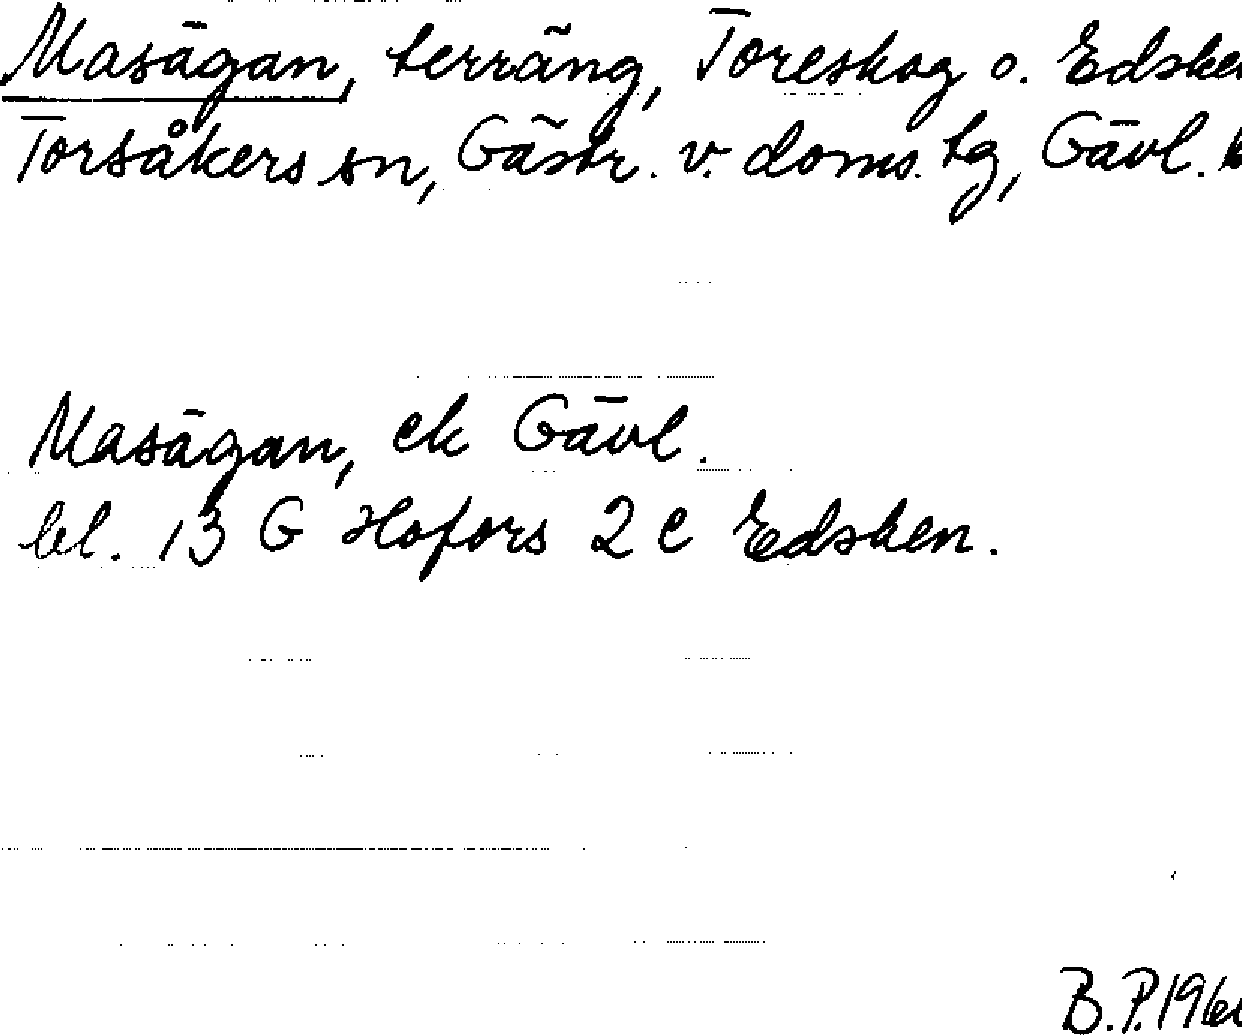 Masägan, terräng, Toreskog o. Edsken
Torsåkers sn, Gästr. v. doms. tg, Gävl. 
Masägan, ek Gävl.
bl. 13 G Hofors 2 c Edsken.
B.P. 196